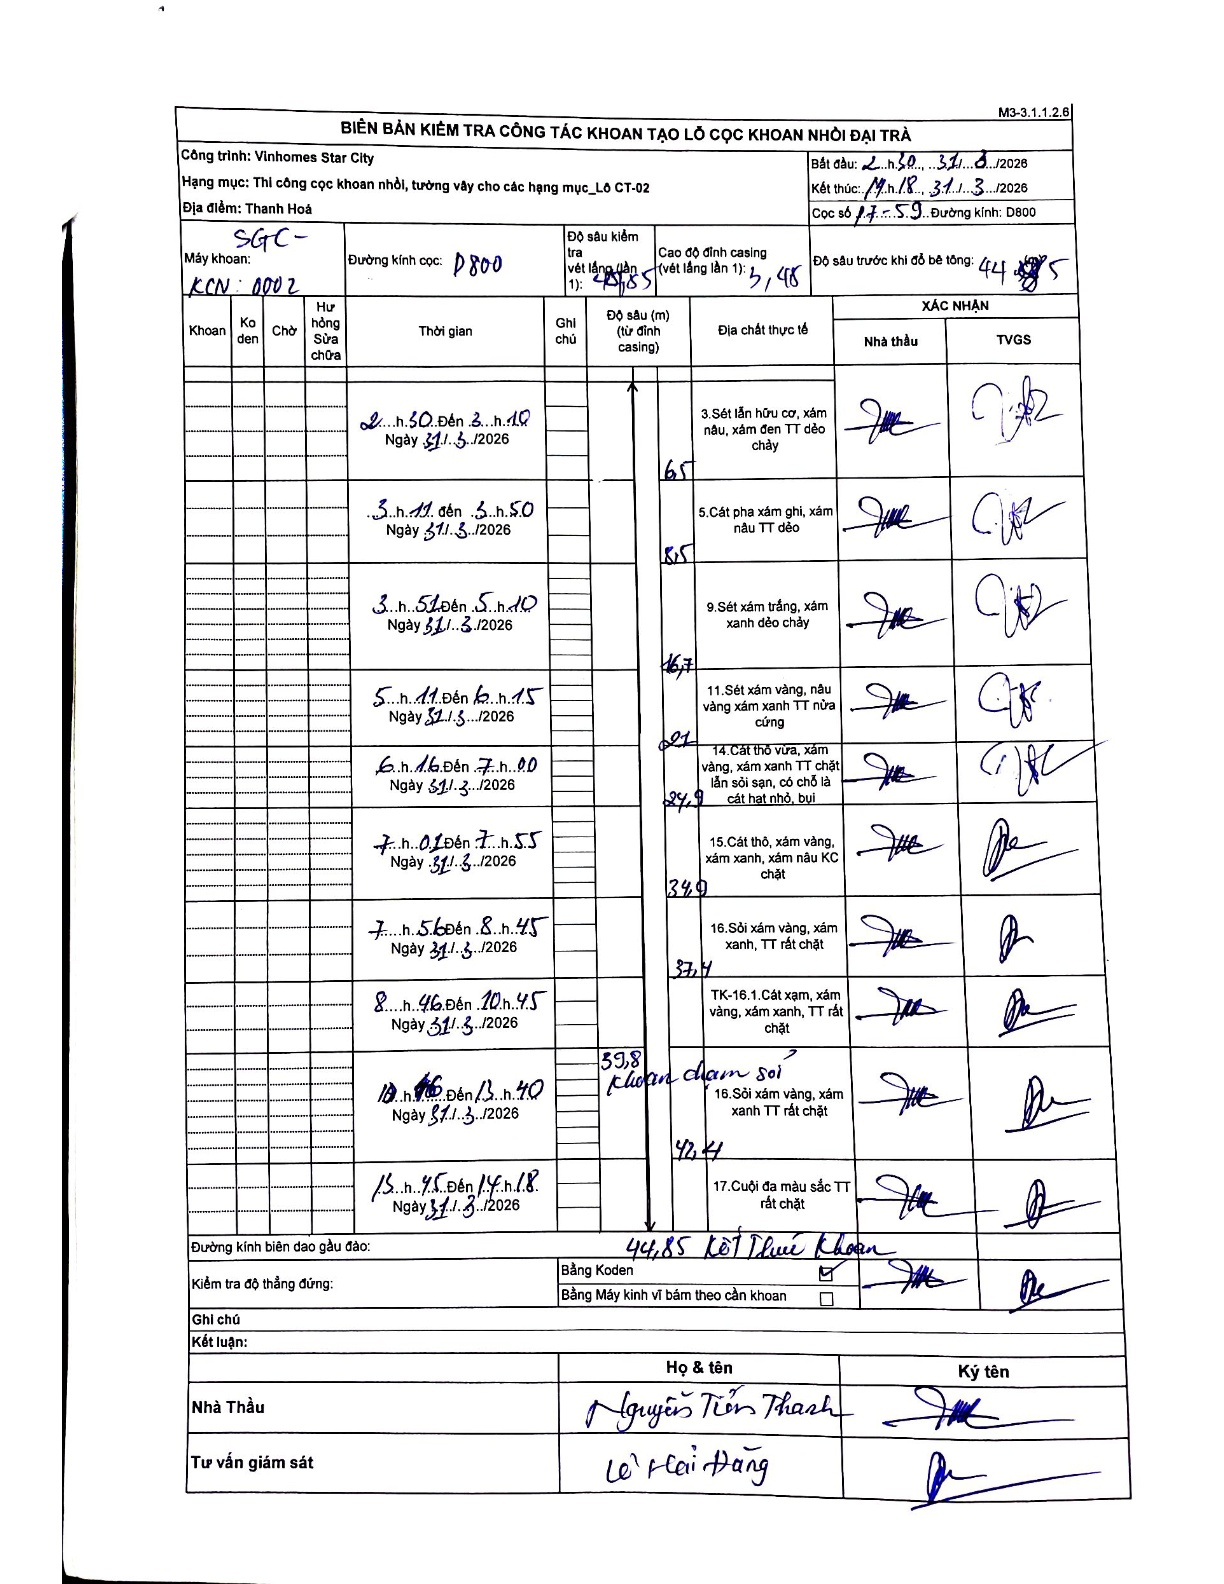 M3-3.1.1.2.6
BIÊN BẢN KIỂM TRA CÔNG TÁC KHOAN TẠO LỖ CỌC KHOAN NHỒI ĐẠI TRÀ
Công trình: Vinhomes Star City
Hạng mục: Thi công cọc khoan nhồi, tường vây cho các hạng mục_Lô CT-02
Địa điểm: Thanh Hoá
Bắt đầu: 2..h.30.., ..31/...3.../2026
Kết thúc: 14.h.18.., 31./...3.../2026
Cọc số 17-59..Đường kính: D800
Máy khoan: SGC-
KCN: 0002
Đường kính cọc: D800
Độ sâu kiểm tra
vét lắng (lần 1):
Cao độ đỉnh casing
(vét lắng lần 1): 3,48
Độ sâu trước khi đổ bê tông: 44
Khoan
Ko den
Chờ
Hư hỏng Sửa chữa
Thời gian
Ghi chú
Độ sâu (m)
(từ đỉnh casing)
Địa chất thực tế
XÁC NHẬN
Nhà thầu
TVGS
2...h.30.Đến 3...h.10
Ngày 31./..3../2026
6,5
3.Sét lẫn hữu cơ, xám nâu, xám đen TT dẻo chảy
3..h.11. đến .3..h.50
Ngày 31./..3.../2026
8,5
5.Cát pha xám ghi, xám nâu TT dẻo
3...h..51.Đến .5..h.10
Ngày 31./..3../2026
16,7
9.Sét xám trắng, xám xanh dẻo chảy
5..h.11.Đến 6..h.15
Ngày 31./..3.../2026
21
11.Sét xám vàng, nâu vàng xám xanh TT nửa cứng
6..h.16.Đến .7..h.00
Ngày 31./..3.../2026
24,9
14.Cát thô vừa, xám vàng, xám xanh TT chặt lẫn sỏi sạn, có chỗ là cát hạt nhỏ, bụi
7...h..01.Đến .7..h.55
Ngày .31./..3.../2026
34,9
15.Cát thô, xám vàng, xám xanh, xám nâu KC chặt
7....h..56Đến .8..h.45
Ngày .31./..3../2026
37,4
16.Sỏi xám vàng, xám xanh, TT rất chặt
8....h..46.Đến .10.h.45
Ngày 31./..3../2026
39,8
TK-16.1.Cát xạm, xám vàng, xám xanh, TT rất chặt
Khoan chạm sỏi
10..h.46...Đến 13..h.40
Ngày 31./..3../2026
42,4
16.Sỏi xám vàng, xám xanh TT rất chặt
13...h..45.Đến 14..h.18.
Ngày 31./..3../2026
17.Cuội đa màu sắc TT rất chặt
Đường kính biên dao gầu đào:
44,85 Kết Thúc Khoan
Kiểm tra độ thẳng đứng:
Bằng Koden
Bằng Máy kinh vĩ bám theo cần khoan
Ghi chú
Kết luận:
Họ & tên
Ký tên
Nhà Thầu
Nguyễn Tiến Thanh
Tư vấn giám sát
Lê Hải Đăng